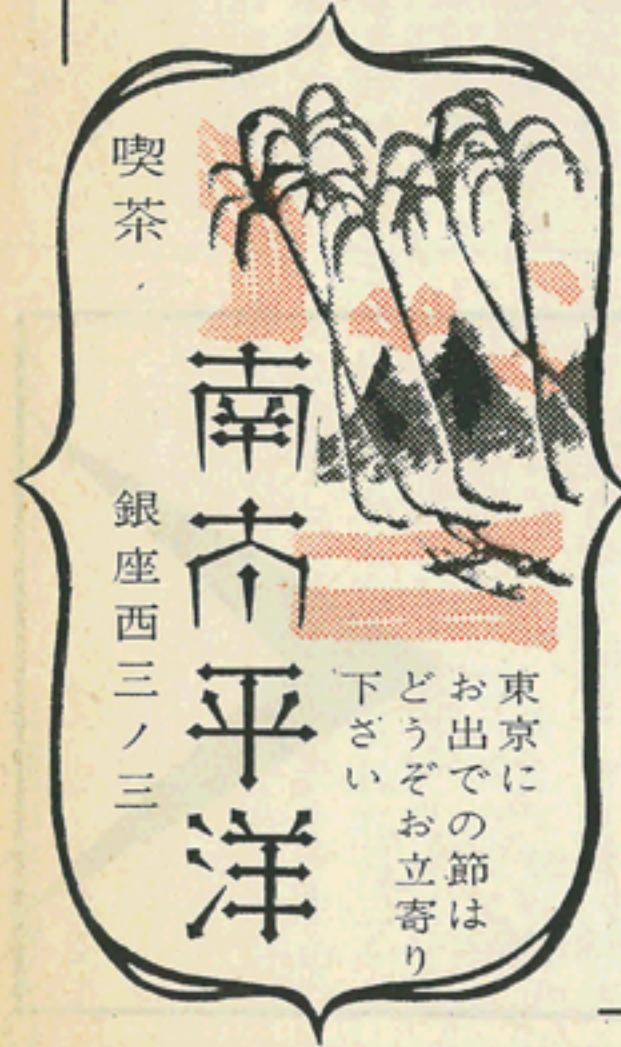 東京に
お出での節は
どうぞお立寄り
下さい
南太平洋
喫茶
銀座西三ノ三